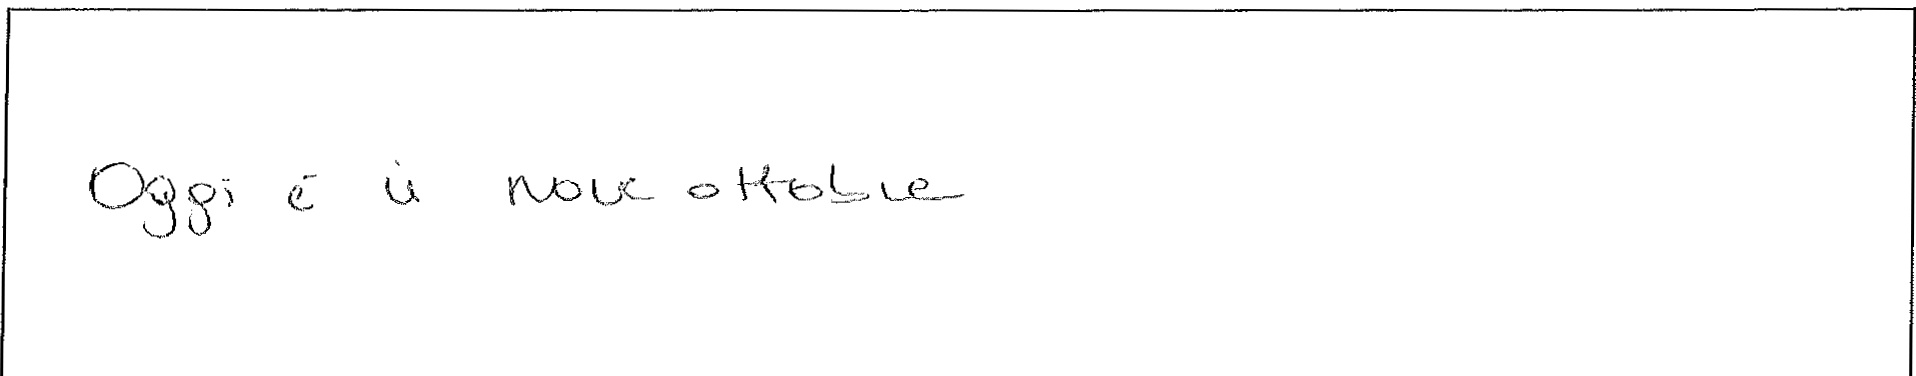 Oggi è il nove ottobre